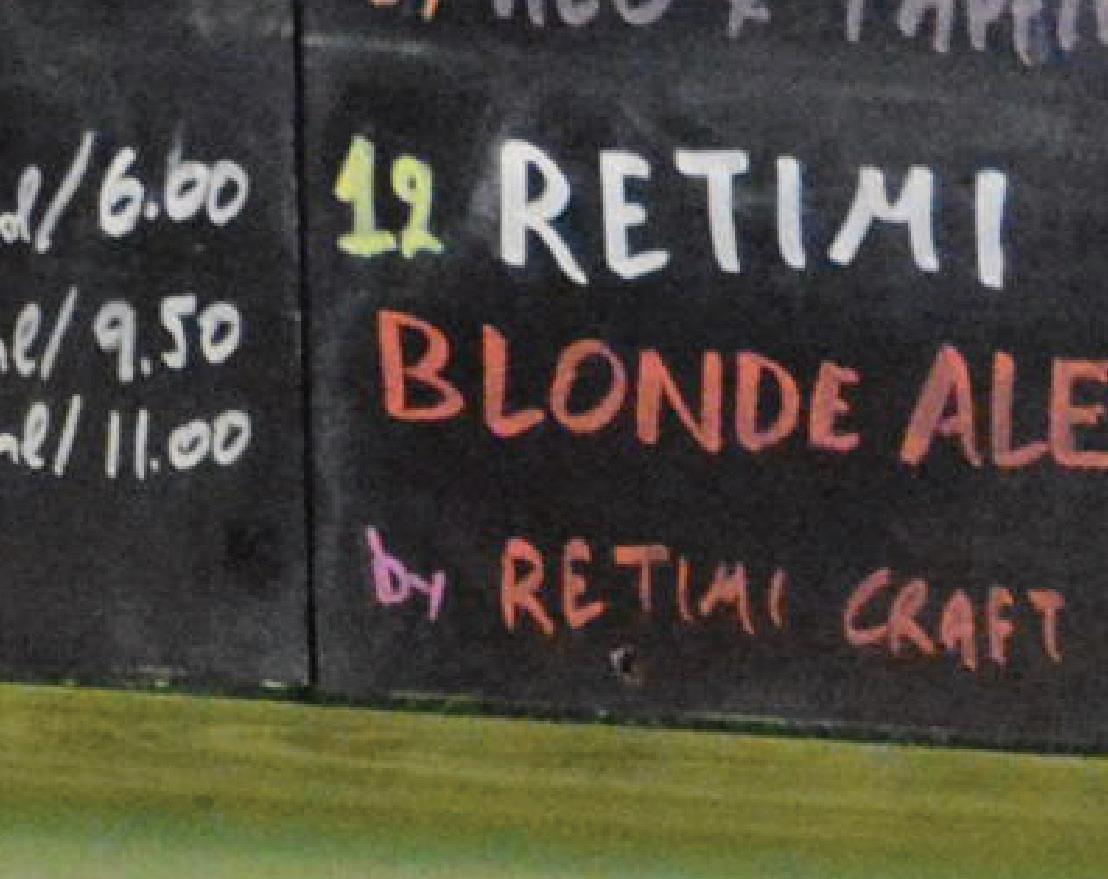 6.60
9.50
11.00
12 RETIMI
BLONDE ALE
by RETIMI CRAFT